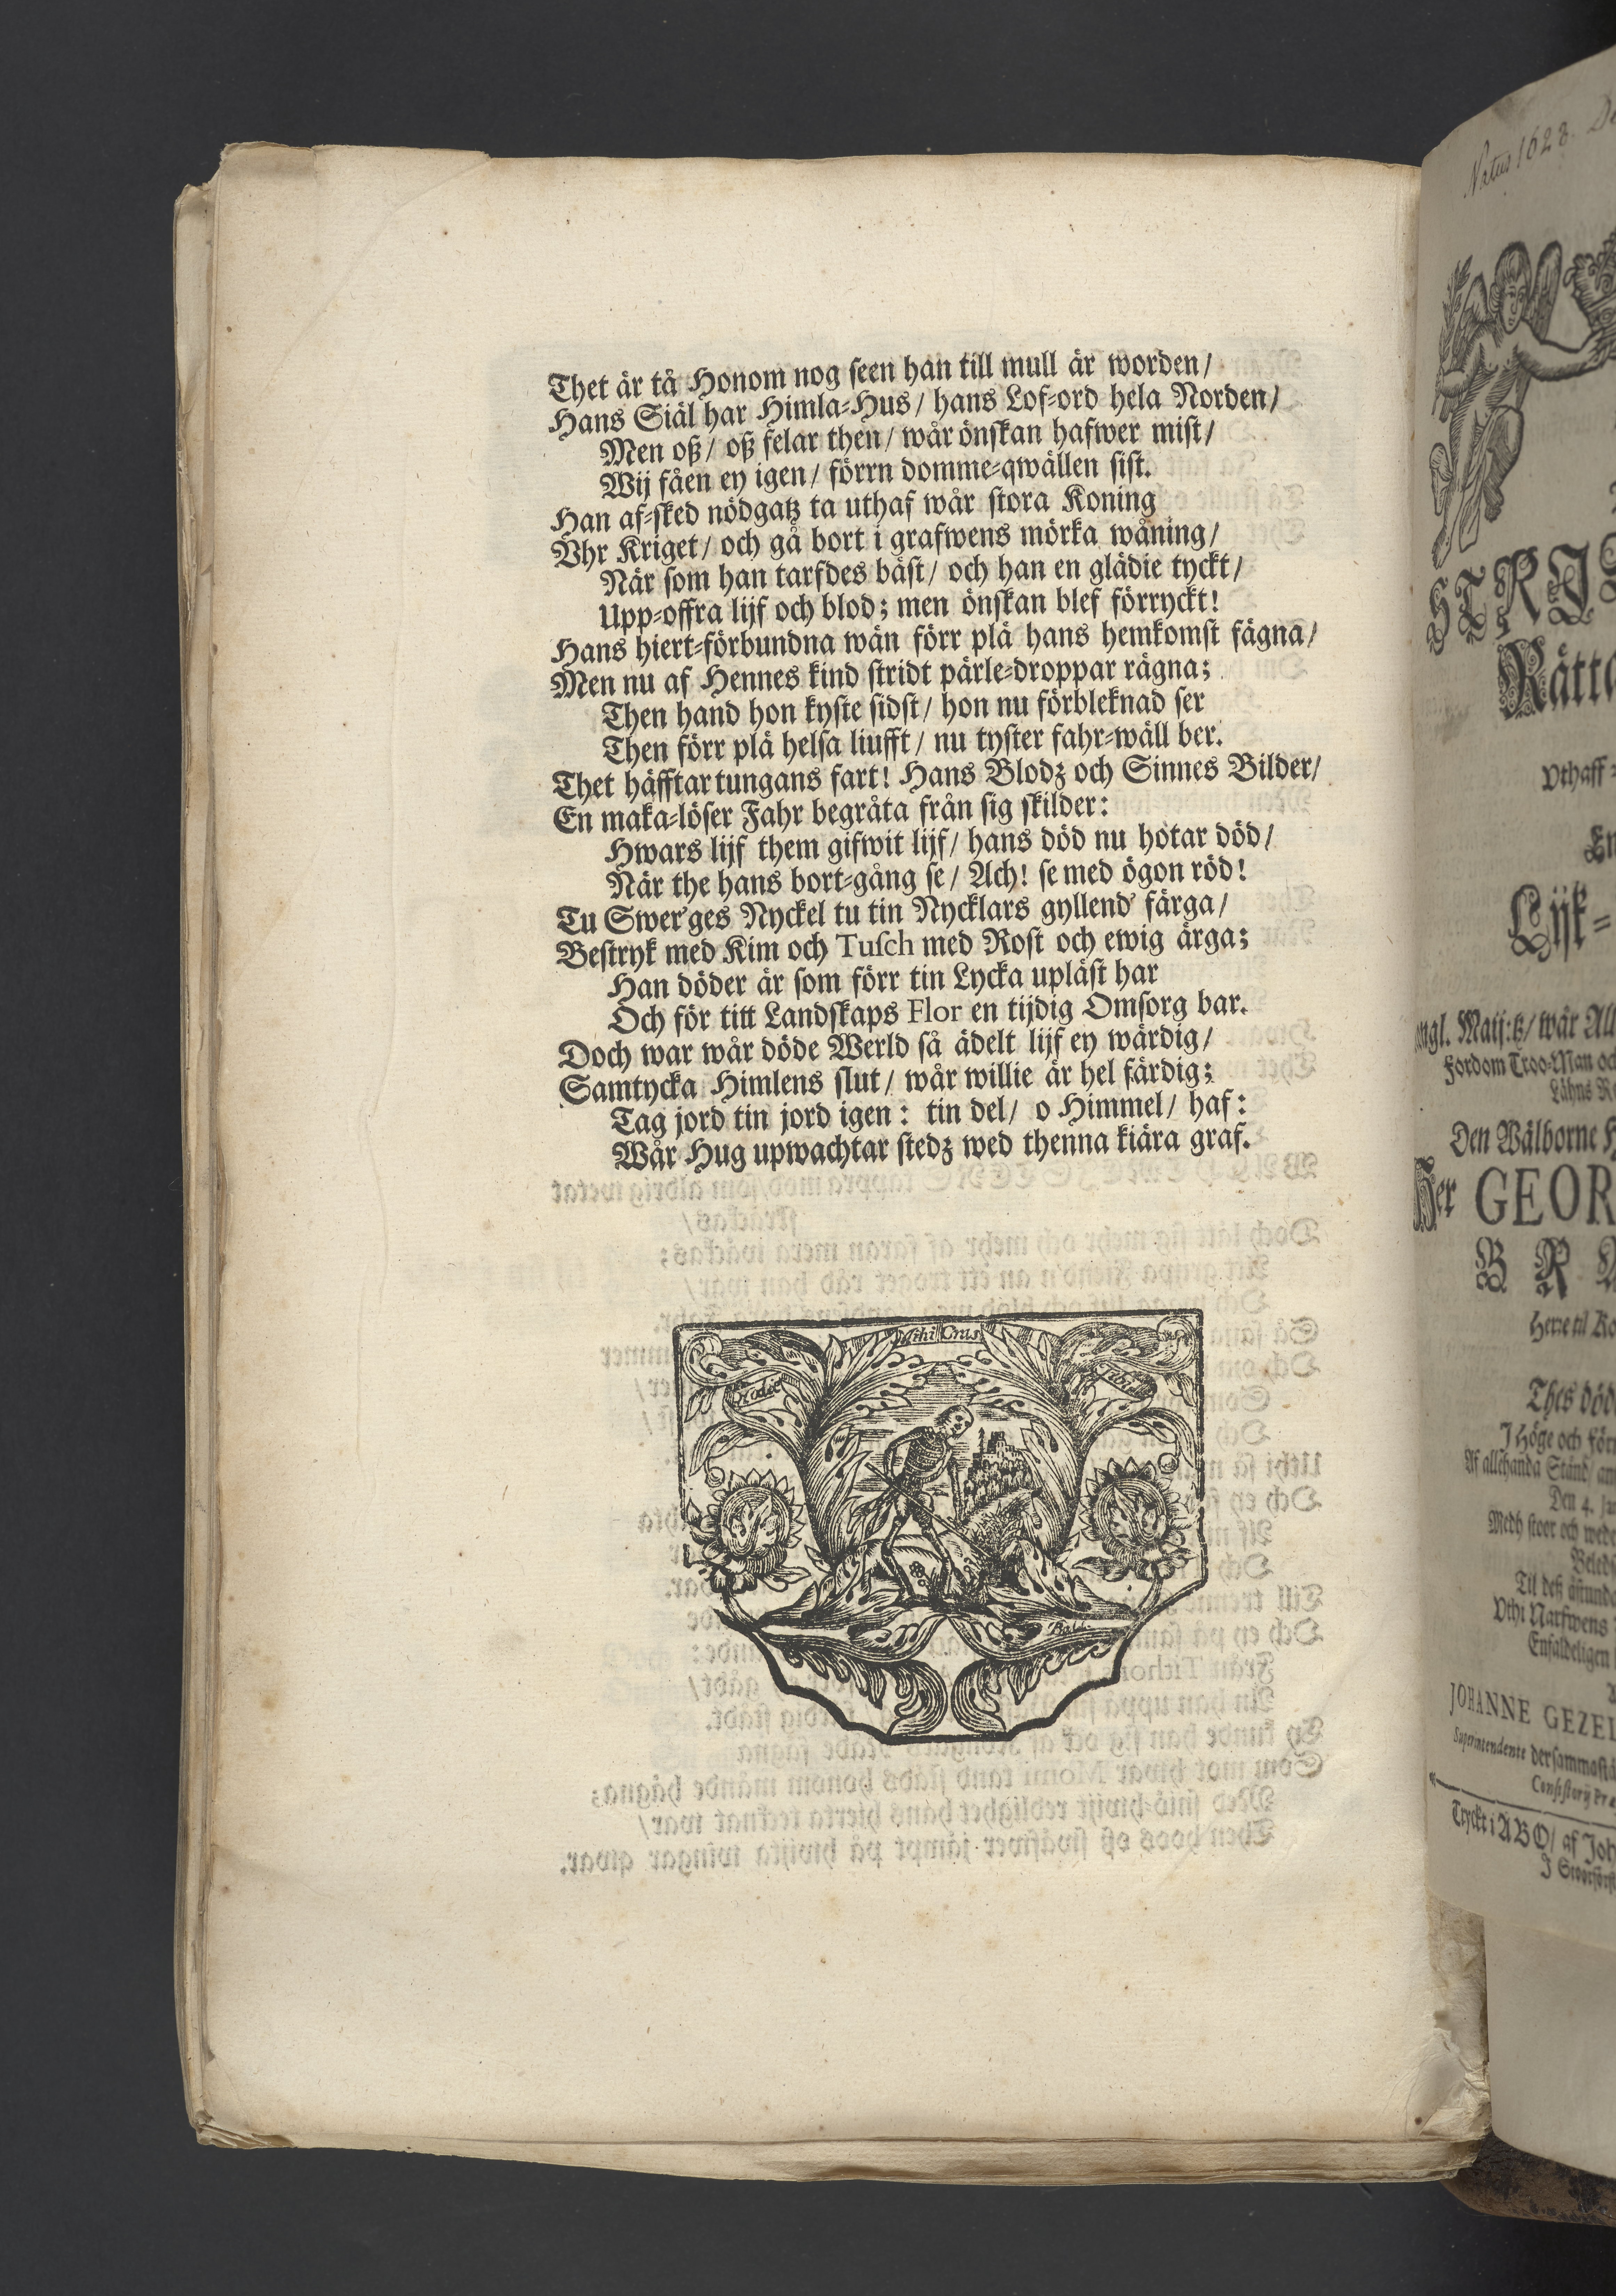 Thet är tå Honom nog seen han till mull är worden/
Hans Siäl har Himla-Hus/ hans Lof-ord hela Norden/
Men oß/ oß felar then/ wår önskan hafwer mist/
Wij fåen ey igen/ förrn domme-qwällen sist.
Han af-sked nödgatz ta uthaf wår stora Koning
Vhr Kriget/ och gå bort i grafwens mörka wåning/
När som han tarfdes bäst/ och han en glädie tyckt/
Upp-offra lijf och blod; men önskan blef förryckt!
Hans hiert-förbundna wän förr plä hans hemkomst fägna/
Men nu af Hennes kind stridt pärle-droppar rägna;
Then hand hon kyste sidst/ hon nu förbleknad ser
Then förr plä helsa liufft/ nu tyster fahr-wäll ber.
Thet häfftar tungans fart! Hans Blodz och Sinnes Bilder/
En maka-löser Fahr begråta från sig skilder:
Hwars lijf them gifwit lijf/ hans död nu hotar död/
När the hans bort-gång se/ Ach! se med ögon röd!
Tu Swer'ges Nyckel tu tin Nycklars gyllend' färga/
Bestryk med Kim och Tusch med Rost och ewig ärga;
Han döder är som förr tin Lycka upläst har
Och för titt Landskaps Flor en tijdig Omsorg bar.
Doch war wår döde Werld så ädelt lijf ey wärdig/
Samtycka Himlens slut/ wår willie är hel färdig;
Tag jord tin jord igen: tin del/ o Himmel/ haf:
Wår Hug upwachtar stedz wed thenna kiära graf.
Mihi Cras
Hodie
Tibi
Natus 1628
Rätt
Vthaff
Lijk-
Maij:tz/ wår
Fordom Troo-Man
Den Wälborne
Her GEOR
Herre til
Thes död
I Höge och
Af allehanda Stånd/
Den 4.
Medh stoor och
Vthi Narfwens
Enfaldeligen
JOHANNE GEZEL
Superintendente dersammast
Tryckt i ABO/ af Joh